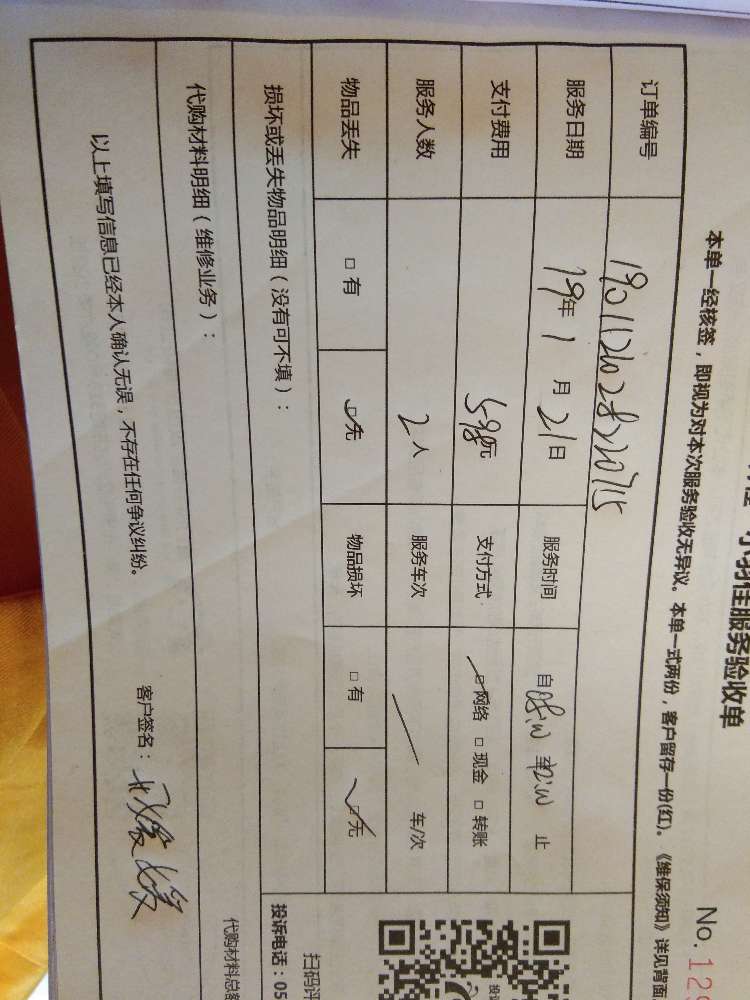 服务验收单
No. 129
本单一经核签，即视为对本次服务验收无异议。本单一式两份，客户留存一份(红)。《维保须知》详见背面
订单编号
服务日期 19年 1 月 21日 服务时间 自 至 止
支付费用 598元 支付方式: □网络 □现金 □转账
服务人数 2人 服务车次 车/次
物品丢失 □有 □无 物品损坏 □有 □无
损坏或丢失物品明细（没有可不填）：
代购材料明细（维修业务）：
以上填写信息已经本人确认无误，不存在任何争议纠纷。
客户签名：
扫码评
投诉电话：05
代购材料总